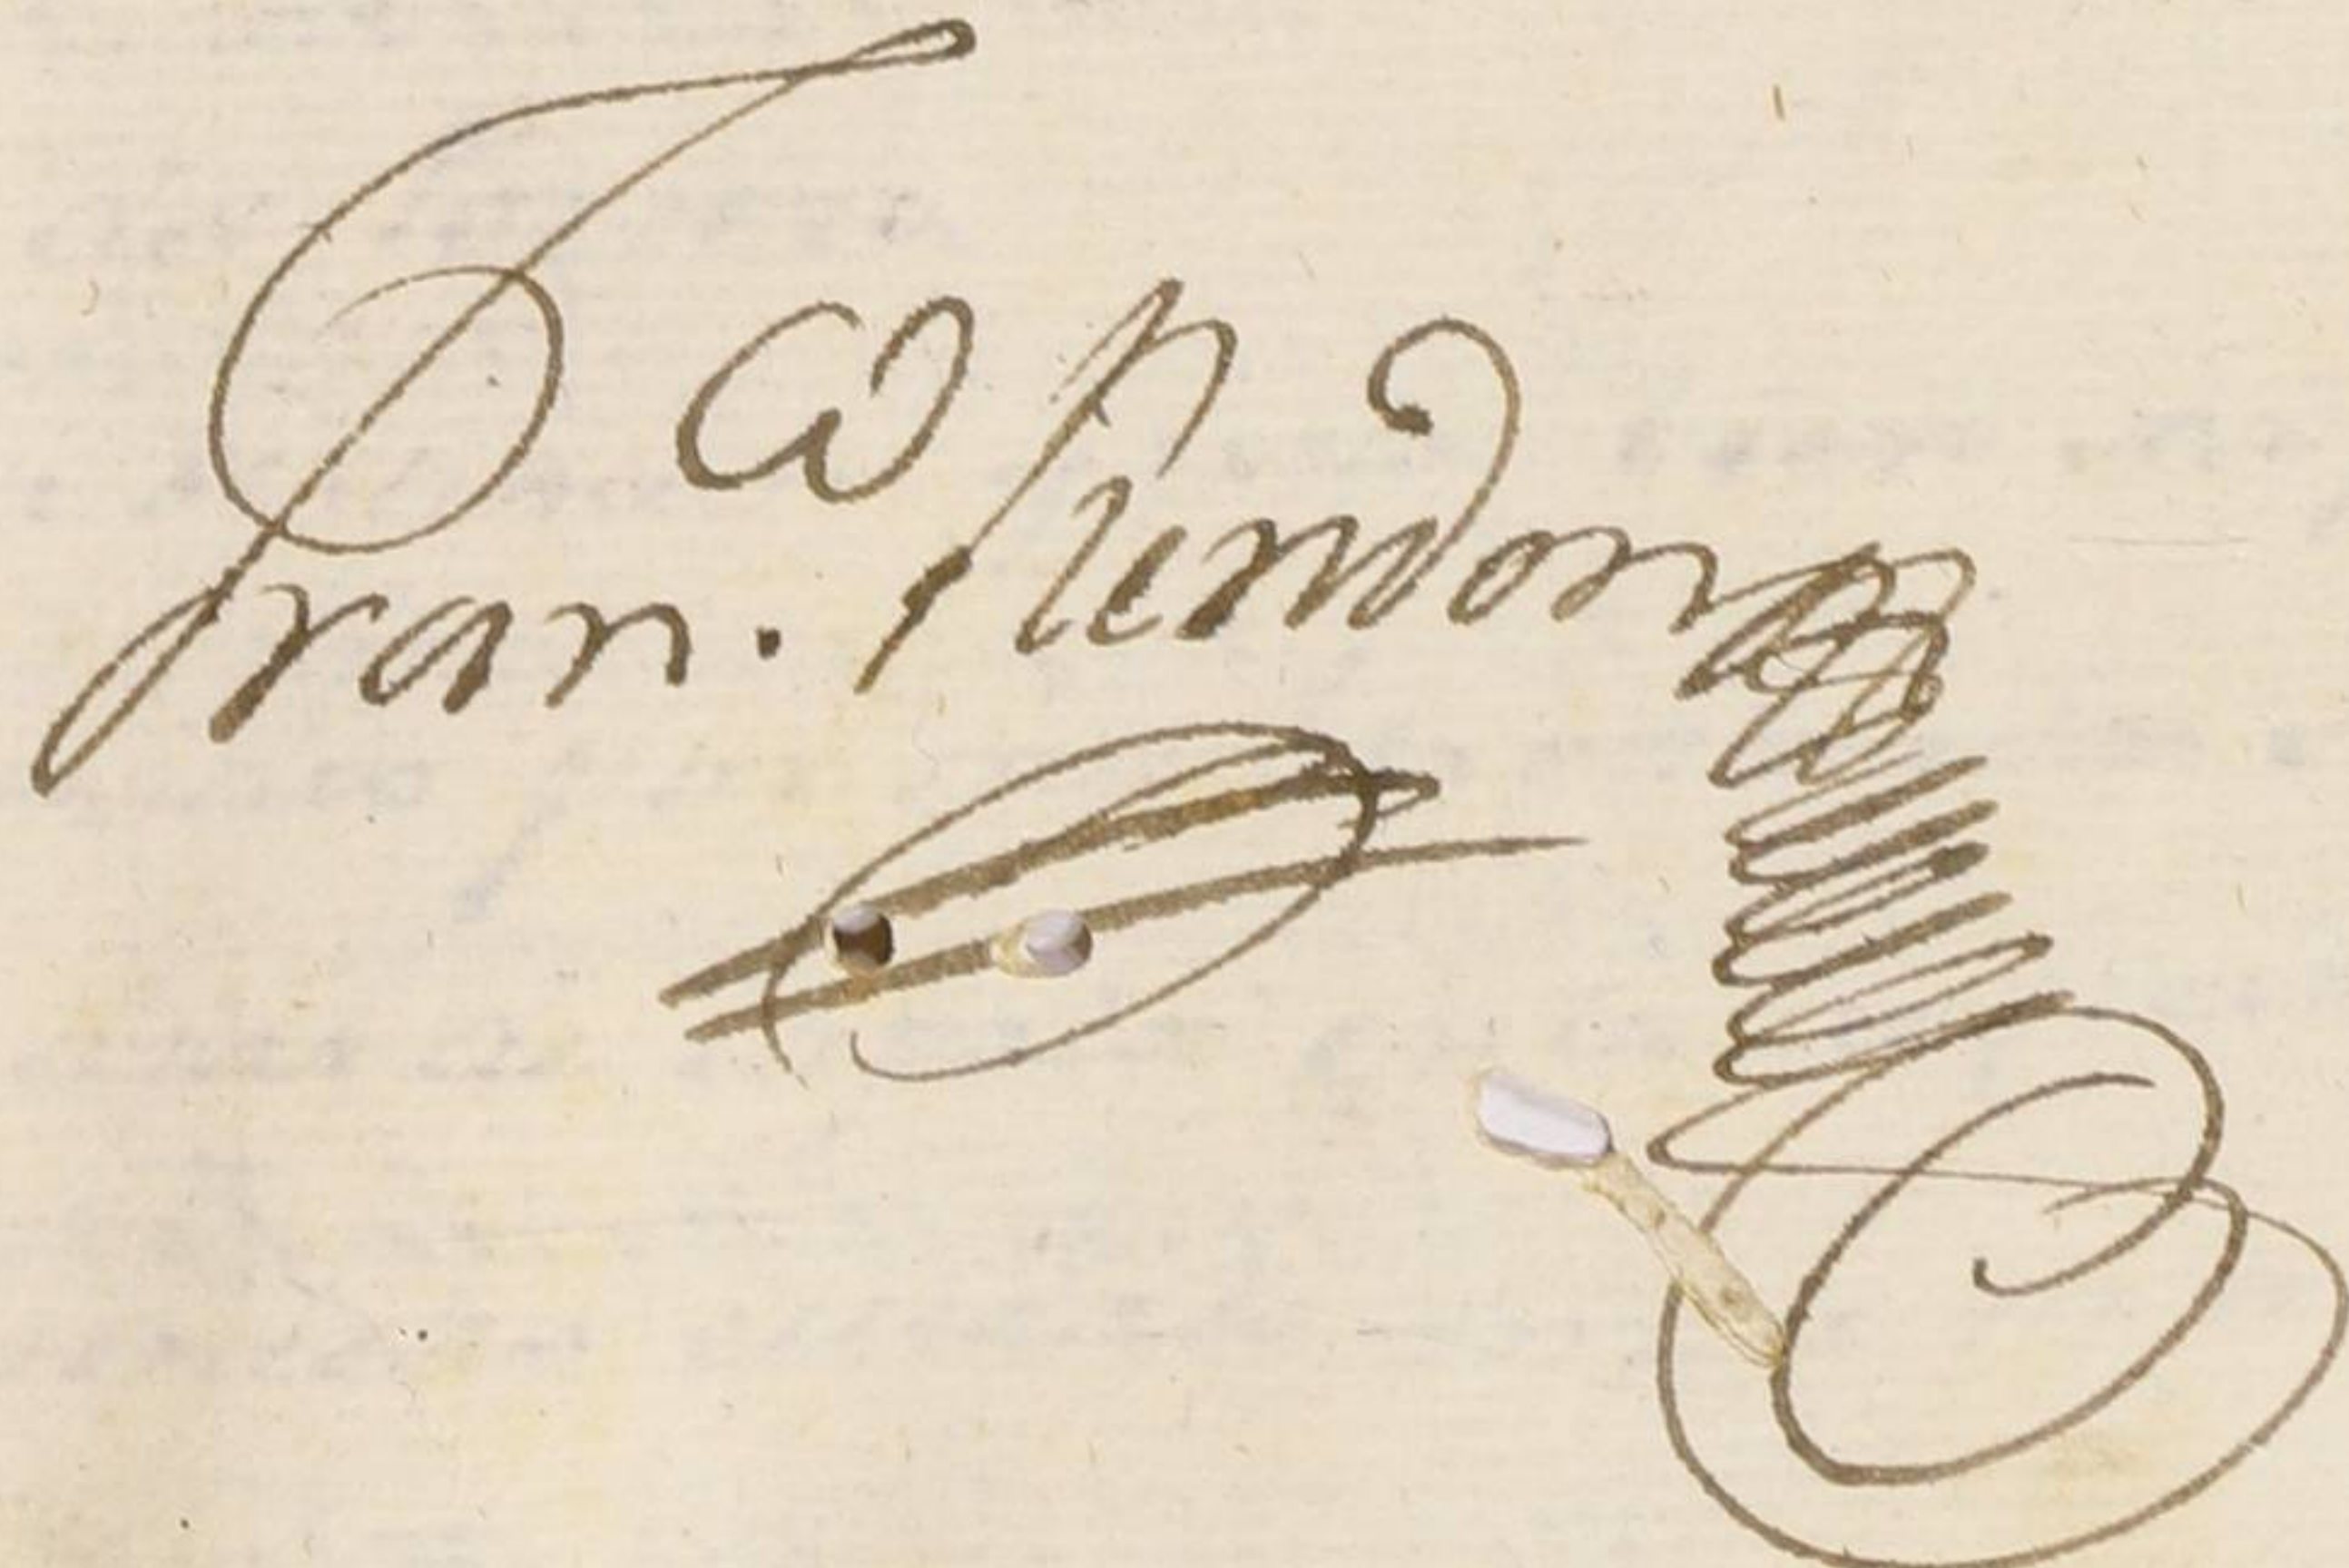 Fran.co Rendon